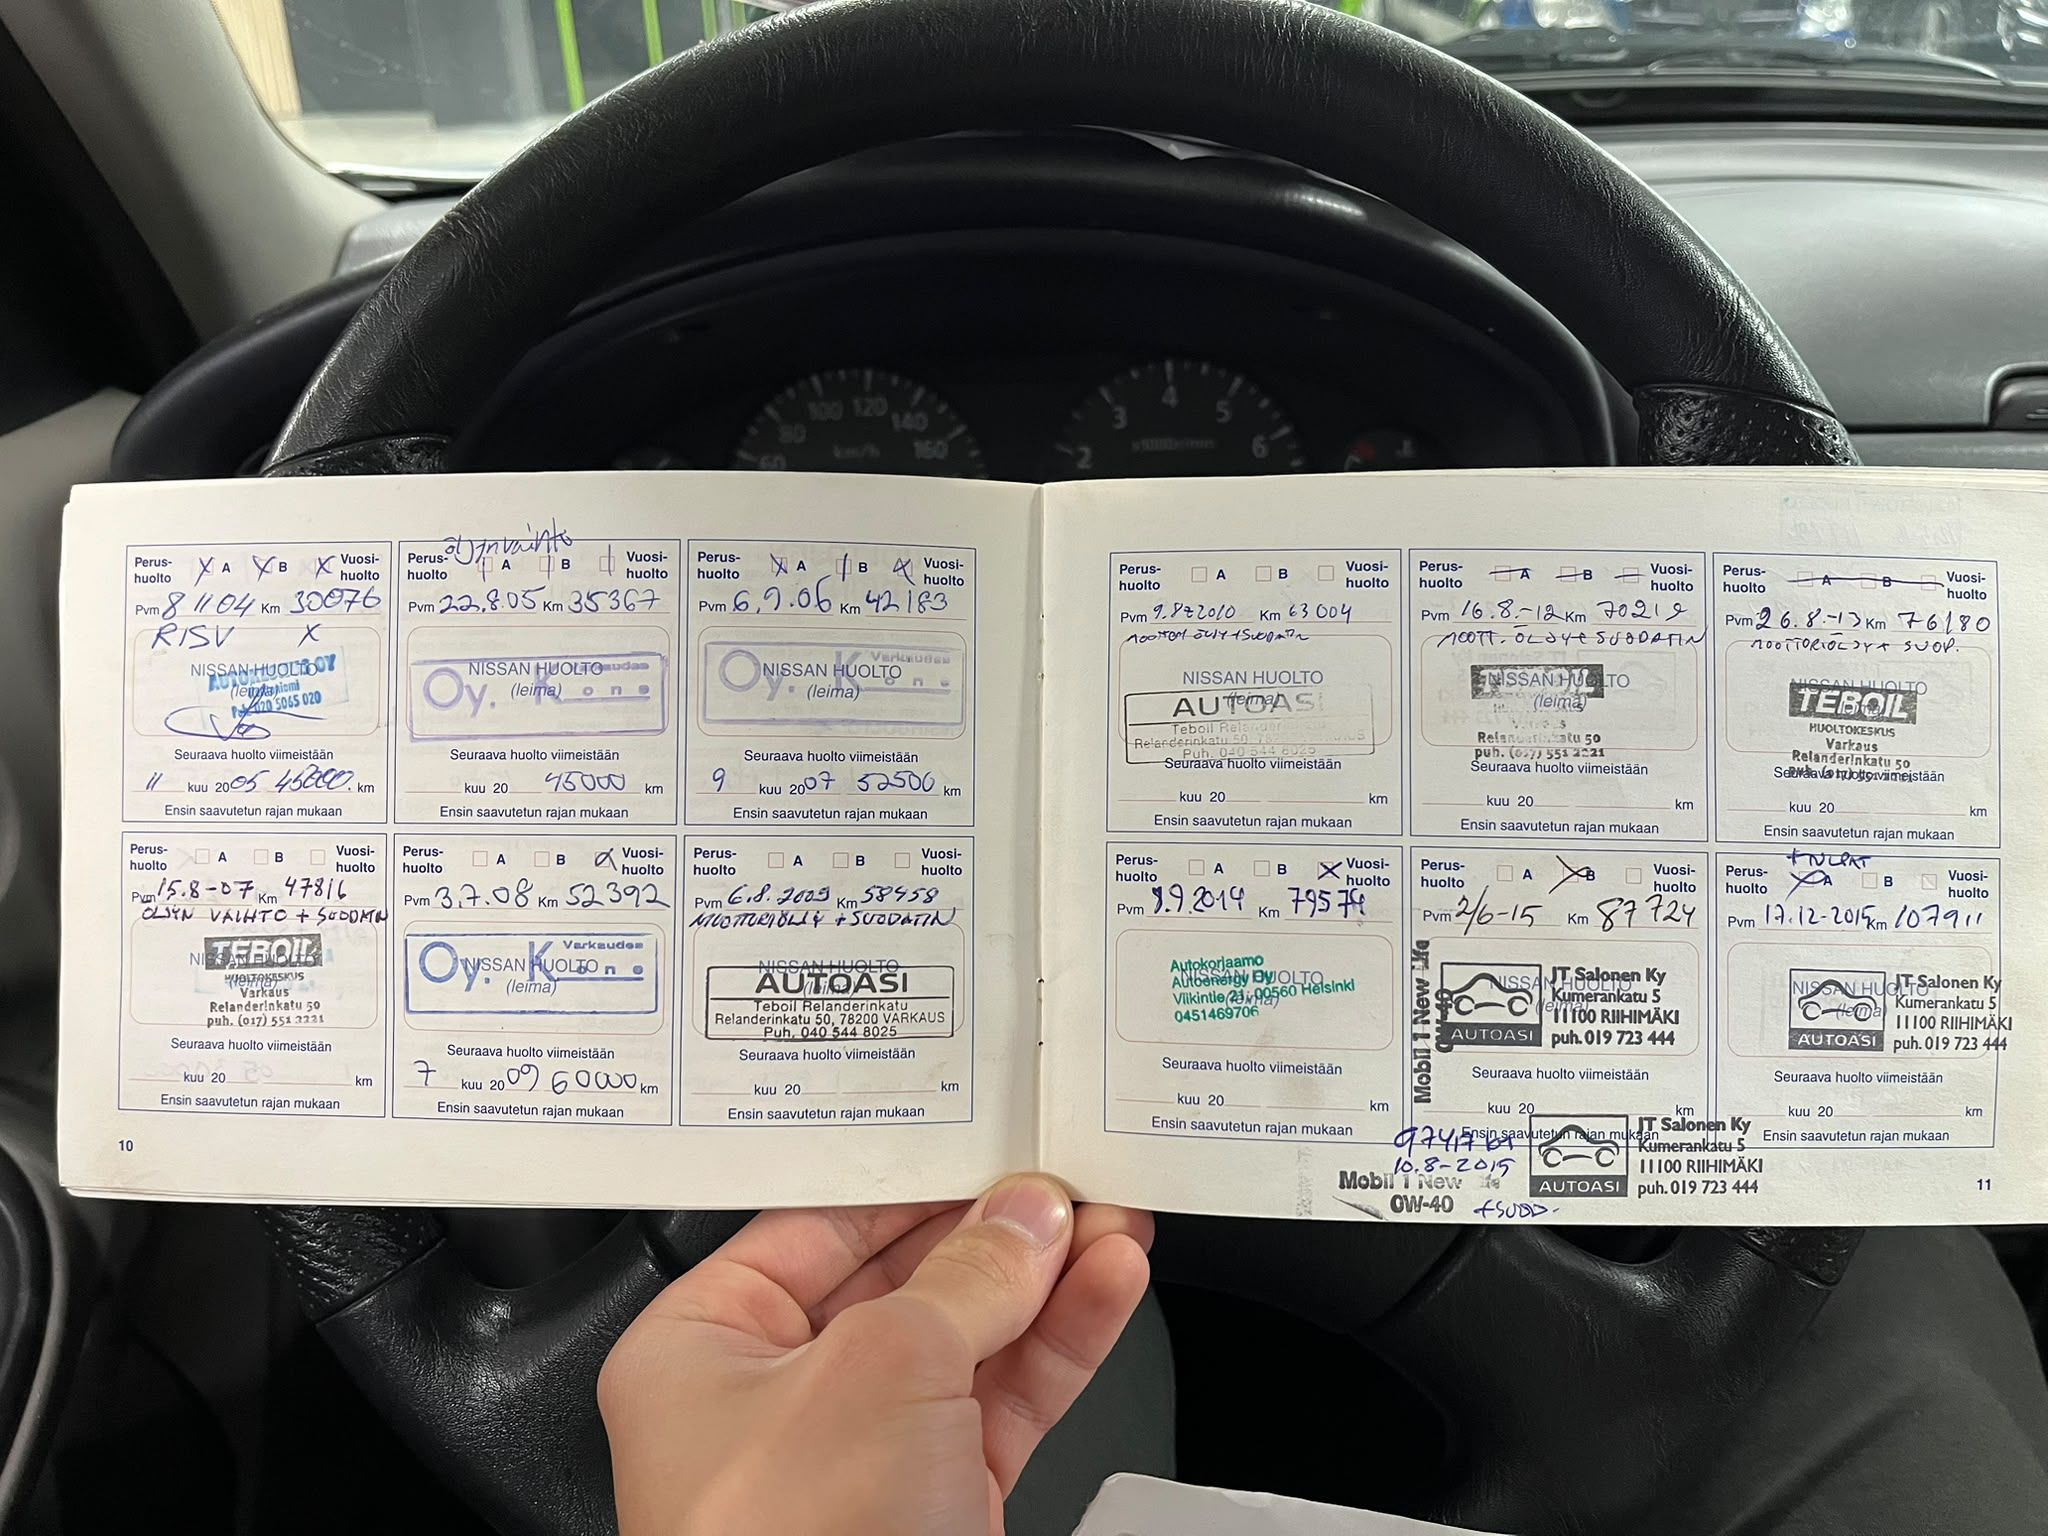 100 120
80 140
km/h
60 160
3 4 5
2 6
Perus-huolto A B Vuosi-huolto
Pvm 8 11 04 Km 30076
RISV X
NISSAN HUOLTO
(leima)
Puh. 020 5065 020
Seuraava huolto viimeistään
11 kuu 2005 45000. km
Ensin saavutetun rajan mukaan
öljynvaihto
Perus-huolto A B Vuosi-huolto
Pvm 22.8.05 Km 35367
NISSAN HUOLTO
(leima)
Oy. Kone Varkauden
Seuraava huolto viimeistään
kuu 20 45000 km
Ensin saavutetun rajan mukaan
Perus-huolto A B Vuosi-huolto
Pvm 6.9.06 Km 42183
NISSAN HUOLTO
(leima)
Oy. Kone Varkauden
Seuraava huolto viimeistään
9 kuu 2007 52500 km
Ensin saavutetun rajan mukaan
Perus-huolto A B Vuosi-huolto
Pvm 15.8-07 Km 47816
ÖLJYN VAIHTO + SUODATIN
NISSAN HUOLTO
TEBOIL
HUOLTOKESKUS
Varkaus
Relanderinkatu 50
puh. (017) 551 2221
Seuraava huolto viimeistään
kuu 20 km
Ensin saavutetun rajan mukaan
Perus-huolto A B Vuosi-huolto
Pvm 3.7.08 Km 52392
NISSAN HUOLTO
(leima)
Oy. Kone Varkauden
Seuraava huolto viimeistään
7 kuu 2009 60000 km
Ensin saavutetun rajan mukaan
Perus-huolto A B Vuosi-huolto
Pvm 6.8.2009 Km 58458
MOOTTORIÖLJY + SUODATIN
NISSAN HUOLTO
(leima)
AUTOASI
Teboil Relanderinkatu
Relanderinkatu 50, 78200 VARKAUS
Puh. 040 544 8025
Seuraava huolto viimeistään
kuu 20 km
Ensin saavutetun rajan mukaan
10
Perus-huolto A B Vuosi-huolto
Pvm 9.8.2010 Km 63004
MOOTTORI ÖLJY + SUODATIN
NISSAN HUOLTO
(leima)
AUTOASI
Teboil Relanderinkatu
Relanderinkatu 50, 78200 VARKAUS
Puh. 040 544 8025
Seuraava huolto viimeistään
kuu 20 km
Ensin saavutetun rajan mukaan
Perus-huolto A B Vuosi-huolto
Pvm 16.8.-12 Km 70219
MOOTT. ÖLJY + SUODATIN
NISSAN HUOLTO
(leima)
Relanderinkatu 50
puh. (017) 551 2221
Seuraava huolto viimeistään
kuu 20 km
Ensin saavutetun rajan mukaan
Perus-huolto A B Vuosi-huolto
Pvm 26.8.-13 Km 76180
MOOTTORIÖLJY + SUOD.
NISSAN HUOLTO
TEBOIL
HUOLTOKESKUS
Varkaus
Relanderinkatu 50
puh. (017) 551 2221
Seuraava huolto viimeistään
kuu 20 km
Ensin saavutetun rajan mukaan
Perus-huolto A B Vuosi-huolto
Pvm 9.9.2014 Km 79574
NISSAN HUOLTO
(leima)
Autokorjaamo
Autoenergy Oy
Viikintie 21, 00560 Helsinki
0451469706
Seuraava huolto viimeistään
kuu 20 km
Ensin saavutetun rajan mukaan
Perus-huolto A B Vuosi-huolto
Pvm 2/6-15 Km 87724
NISSAN HUOLTO
(leima)
Mobil 1 New Life
0W-40
JT Salonen Ky
Kumerankatu 5
11100 RIIHIMÄKI
AUTOASI puh. 019 723 444
Seuraava huolto viimeistään
kuu 20 km
Ensin saavutetun rajan mukaan
Perus-huolto A B Vuosi-huolto
Pvm 17.12-2015 Km 107911
NISSAN HUOLTO
(leima)
JT Salonen Ky
Kumerankatu 5
11100 RIIHIMÄKI
AUTOASI puh. 019 723 444
Seuraava huolto viimeistään
kuu 20 km
Ensin saavutetun rajan mukaan
10.8-2015
Mobil 1 New Life
0W-40
+SUOD.
JT Salonen Ky
Kumerankatu 5
11100 RIIHIMÄKI
AUTOASI puh. 019 723 444
11